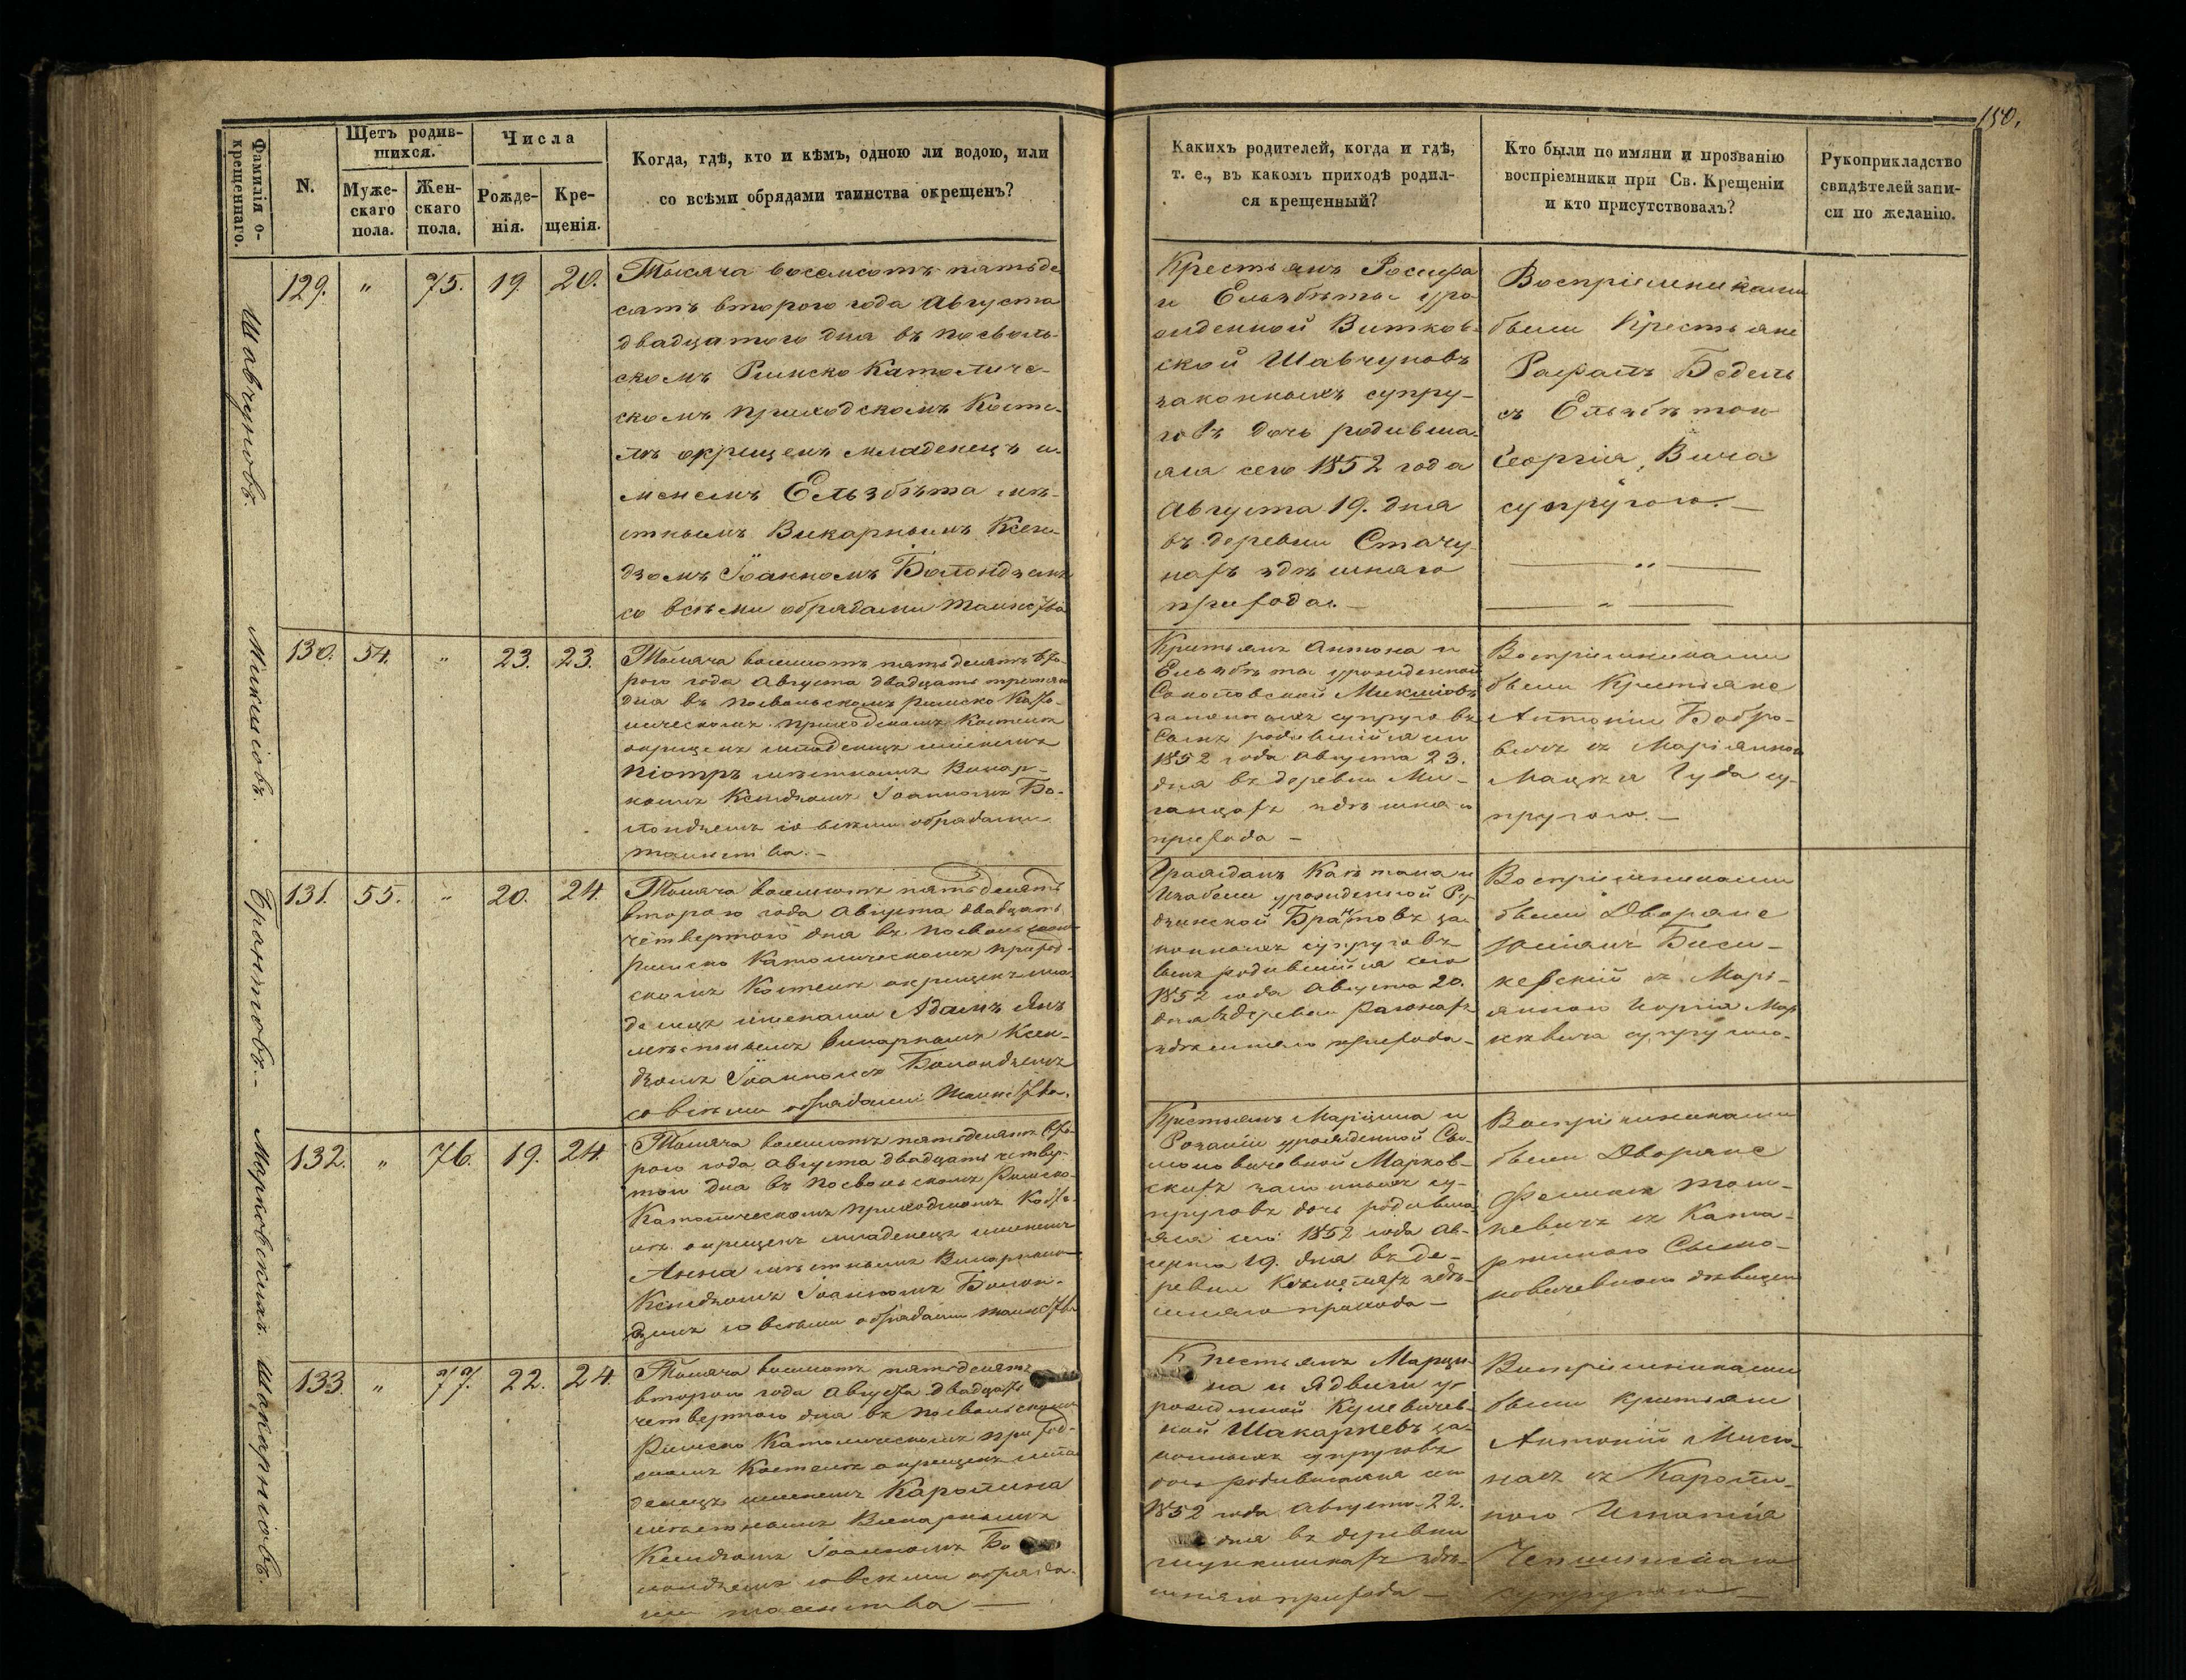 150.
Фамилія о-
крещеннаго.
N.
Щетъ родив-
шихся.
Муже-
скаго
пола.
Жен-
скаго
пола.
Числа
Рожде-
нія.
Кре-
щенія.
Когда, гдѣ, кто и кѣмъ, одною ли водою, или
со всѣми обрядами таинства окрещенъ?
Какихъ родителей, когда и гдѣ,
т. е., въ какомъ приходѣ родил-
ся крещенный?
Кто были по имяни и прозванію
воспріемники при Св. Крещеніи
и кто присутствовалъ?
Рукоприкладство
свидѣтелей запи-
си по желанію.
Шавчуновъ.
129. " 75. 19. 20.
Тысяча восемсотъ пятьде
сятъ второго года Августа
двадцатого дня въ Посволь-
скомъ Римско Католиче-
скомъ приходскомъ Косте-
лѣ окрещенъ младенецъ и-
менемъ Ельзбѣта мѣ-
стнымъ Викарнымъ Ксен-
дзомъ Іоанномъ Болондземъ
со всѣми обрядами таинства
Крестьянъ Іосифа
и Ельзбѣты уро
жденной Витков-
ской Шавчуновъ
законныхъ супру-
говъ дочь родивша-
яся сего 1852 года
Августа 19. дня
въ деревни Стачу
нахъ здѣшняго
прихода. —
Воспріемниками
были Крестьяне
Рафалъ Бедель
съ Ельзбѣтою
Георгія Вича
супругою. —
Микшовъ.
130. 54. " 23. 23.
Тысяча восемсотъ пятьдесятъ вто-
рого года Августа двадцать третяго
дня въ Посвольскомъ Римско Като-
лическомъ приходскомъ Костелѣ
окрещенъ младенецъ именемъ
Піотръ мѣстнымъ Викар-
нымъ Ксендзомъ Іоанномъ Бо-
лондземъ со всѣми обрядами
таинства. —
Крестьянъ Антона и
Ельзбѣты урожденной
Соколовской Микшовъ
законныхъ супруговъ
сынъ родившійся сего
1852 года Августа 23.
дня въ деревни Ми-
ганцахъ здѣшняго
прихода —
Воспріемниками
были Крестьяне
Антоній Бобро-
вичъ съ Маріянною
Мацкя Гуда су-
пругою. —
Брантовъ. —
131. 55. " 20. 24.
Тысяча восемсотъ пятьдесятъ
второго года Августа двадцать
четвертого дня въ Посвольскомъ
Римско Католическомъ приход-
скомъ Костелѣ окрещенъ мла
денецъ именами Адамъ Янъ
мѣстнымъ Викарнымъ Ксен-
дзомъ Іоанномъ Болондземъ
со всѣми обрядами таинства.
Гражданъ Каетана и
Изабели урожденной Ру
дзинской Брантовъ за-
конныхъ супруговъ
сынъ родившійся сего
1852 года Августа 20.
дня въ деревни Рагожахъ
здѣшняго прихода —
Воспріемниками
были Дворяне
Юліанъ Биси-
керскій съ Марі-
янною Іорія Мар
кевича супругою.
Марковскихъ.
132. " 76. 19. 24.
Тысяча восемсотъ пятьдесятъ вто-
рого года Августа двадцать четвер-
того дня въ Посвольскомъ Римско-
Католическомъ приходскомъ Косте-
лѣ окрещенъ младенецъ именемъ
Анна мѣстнымъ Викарнымъ
Ксендзомъ Іоанномъ Болон-
дземъ со всѣми обрядами таинства
Крестьянъ Марцина и
Розаліи урожденной Сы-
моновичевной Марков-
скихъ законныхъ су-
пруговъ дочь родивша-
яся сего 1852 года Ав-
густа 19. дня въ де-
ревни здѣ-
шняго прихода —
Воспріемниками
были Дворяне
Феликсъ Том-
кевичъ съ Ката-
ржиною Сымо-
новичевною дѣвицею
Шакарнювъ.
133. " 77. 22. 24.
Тысяча восемсотъ пятьдесятъ
второго года Августа двадцать
четвертого дня въ Посвольскомъ
Римско Католическомъ приход-
скомъ Костелѣ окрещенъ мла
денецъ именемъ Каролина
мѣстнымъ Викарнымъ
Ксендзомъ Іоанномъ Бо
лондземъ со всѣми обряда-
ми таинства —
Крестьянъ Марци-
на и Ядвиги у-
рожденной Кулевичев-
ной Шакарневъ за-
конныхъ супруговъ
дочь родившаяся сего
1852 года Августа 22.
дня въ деревни
здѣ-
шняго прихода —
Воспріемниками
были крестьяне
Антоній Мису-
насъ съ Кароли-
ною Игнатія
супругою —